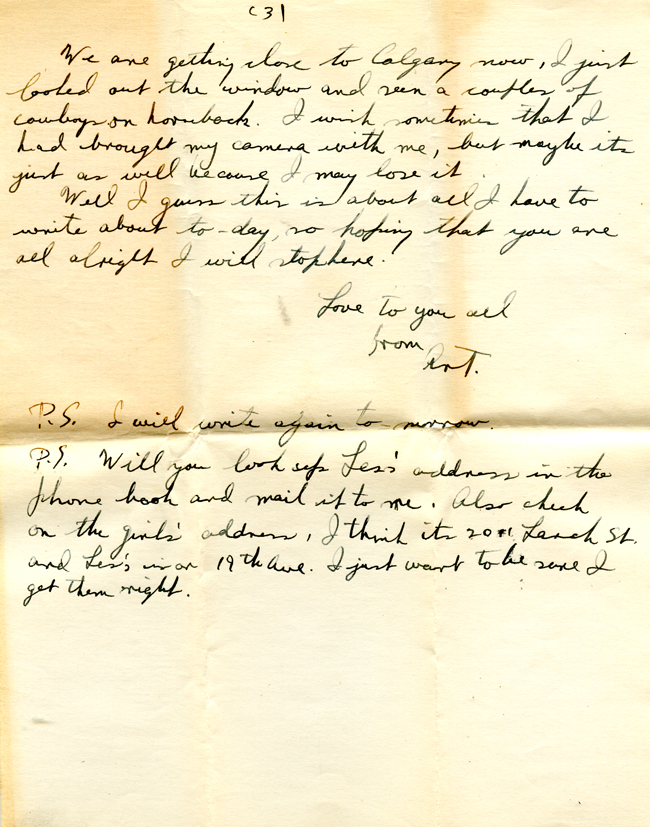 (3)
We are getting close to Calgary now, I just
looked out the window and seen a couples of
cowboys on horseback. I wish sometimes that I
had brought my camera with me, but maybe its
just as well because I may lose it.
Well I guess this is about all I have to
write about to-day, so hoping that you are
all alright I will stop here.
Love to you all
from
Art.
P.S. I will write again to-morrow.
P.S. Will you look up Les's address in the
phone book and mail it to me. Also check
on the girls' address, I think its Larch St.
and Les's is on 19th Ave. I just want to be sure I
get them right.